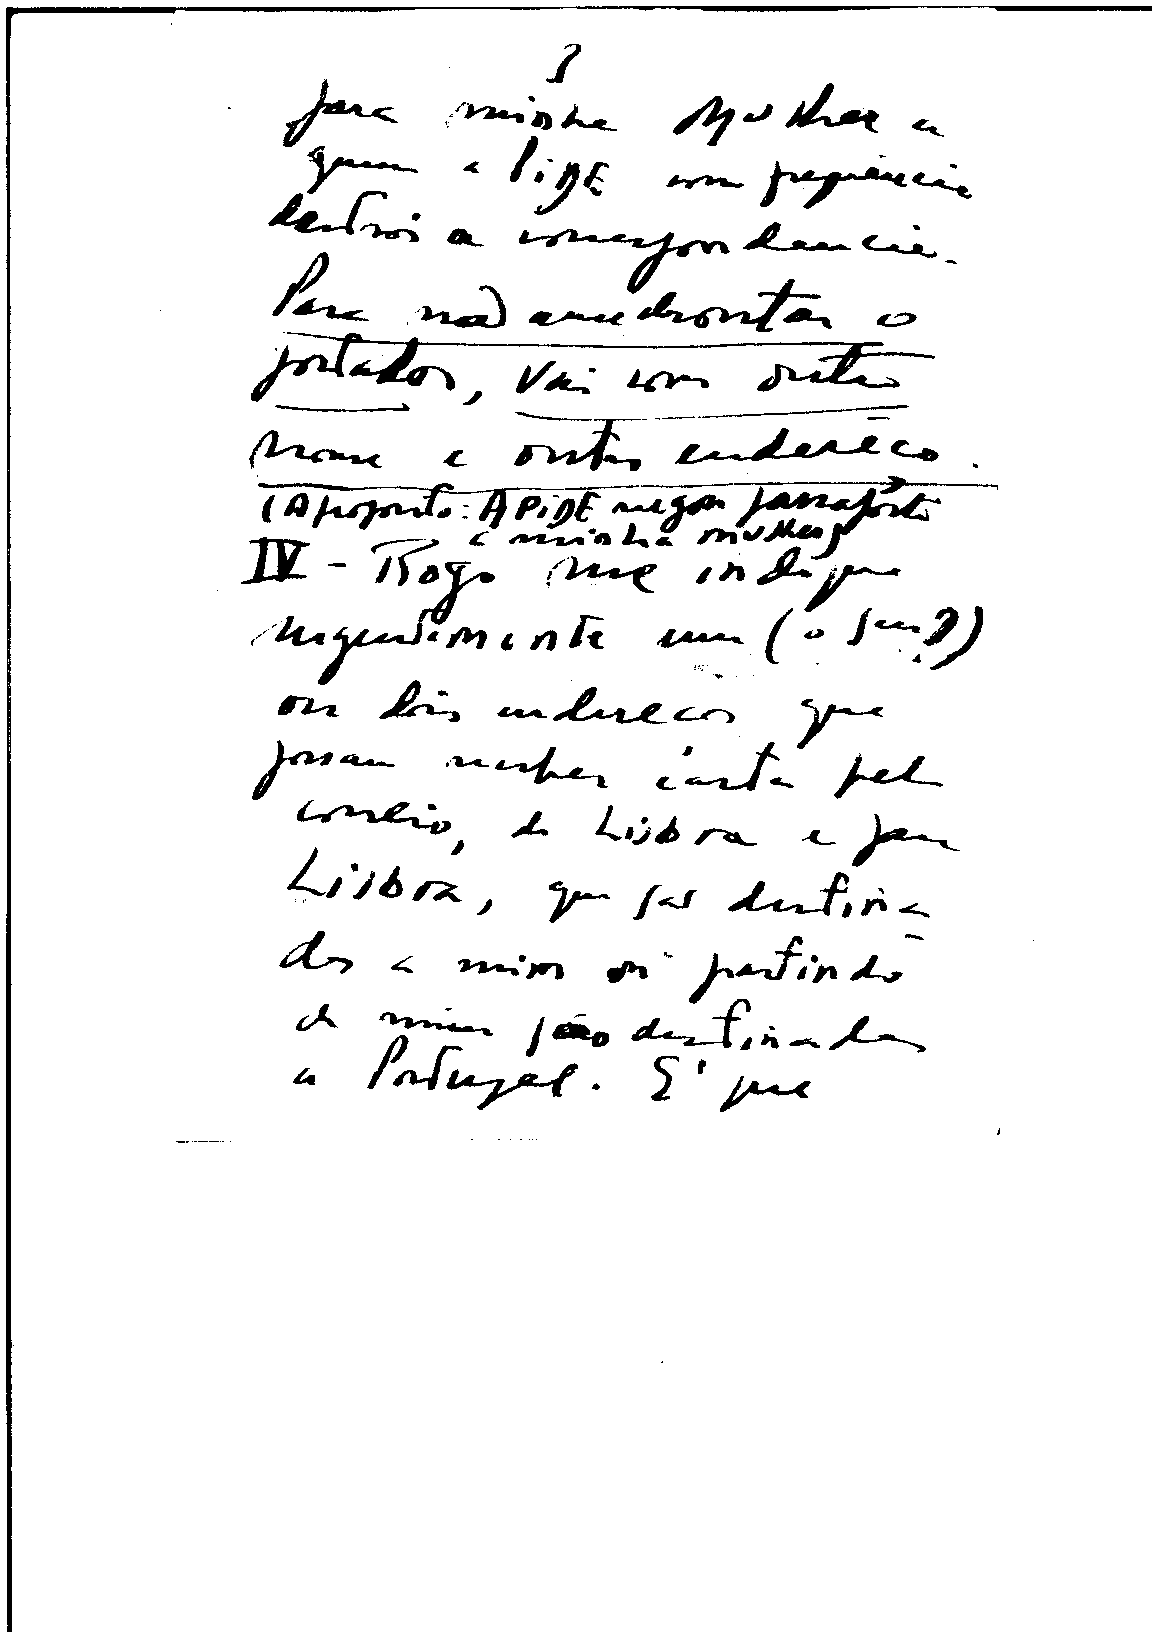 3
para minha Mulher a
quem a PiDE com frequência
destroi a correspondencia.
Para não amedrontar o
portador, vai com outro
nome e outro enderêço.
(A proposito: A PiDE negou passapôrte
a minha mulher)
IV - Rogo me indique
urgentemente um (o seu?)
ou dois endereços que
possam receber carta pelo
correio, de Lisboa e para
Lisboa, que são destina
dos a mim ou partindo
de mim são destinadas
a Portugal. E' que